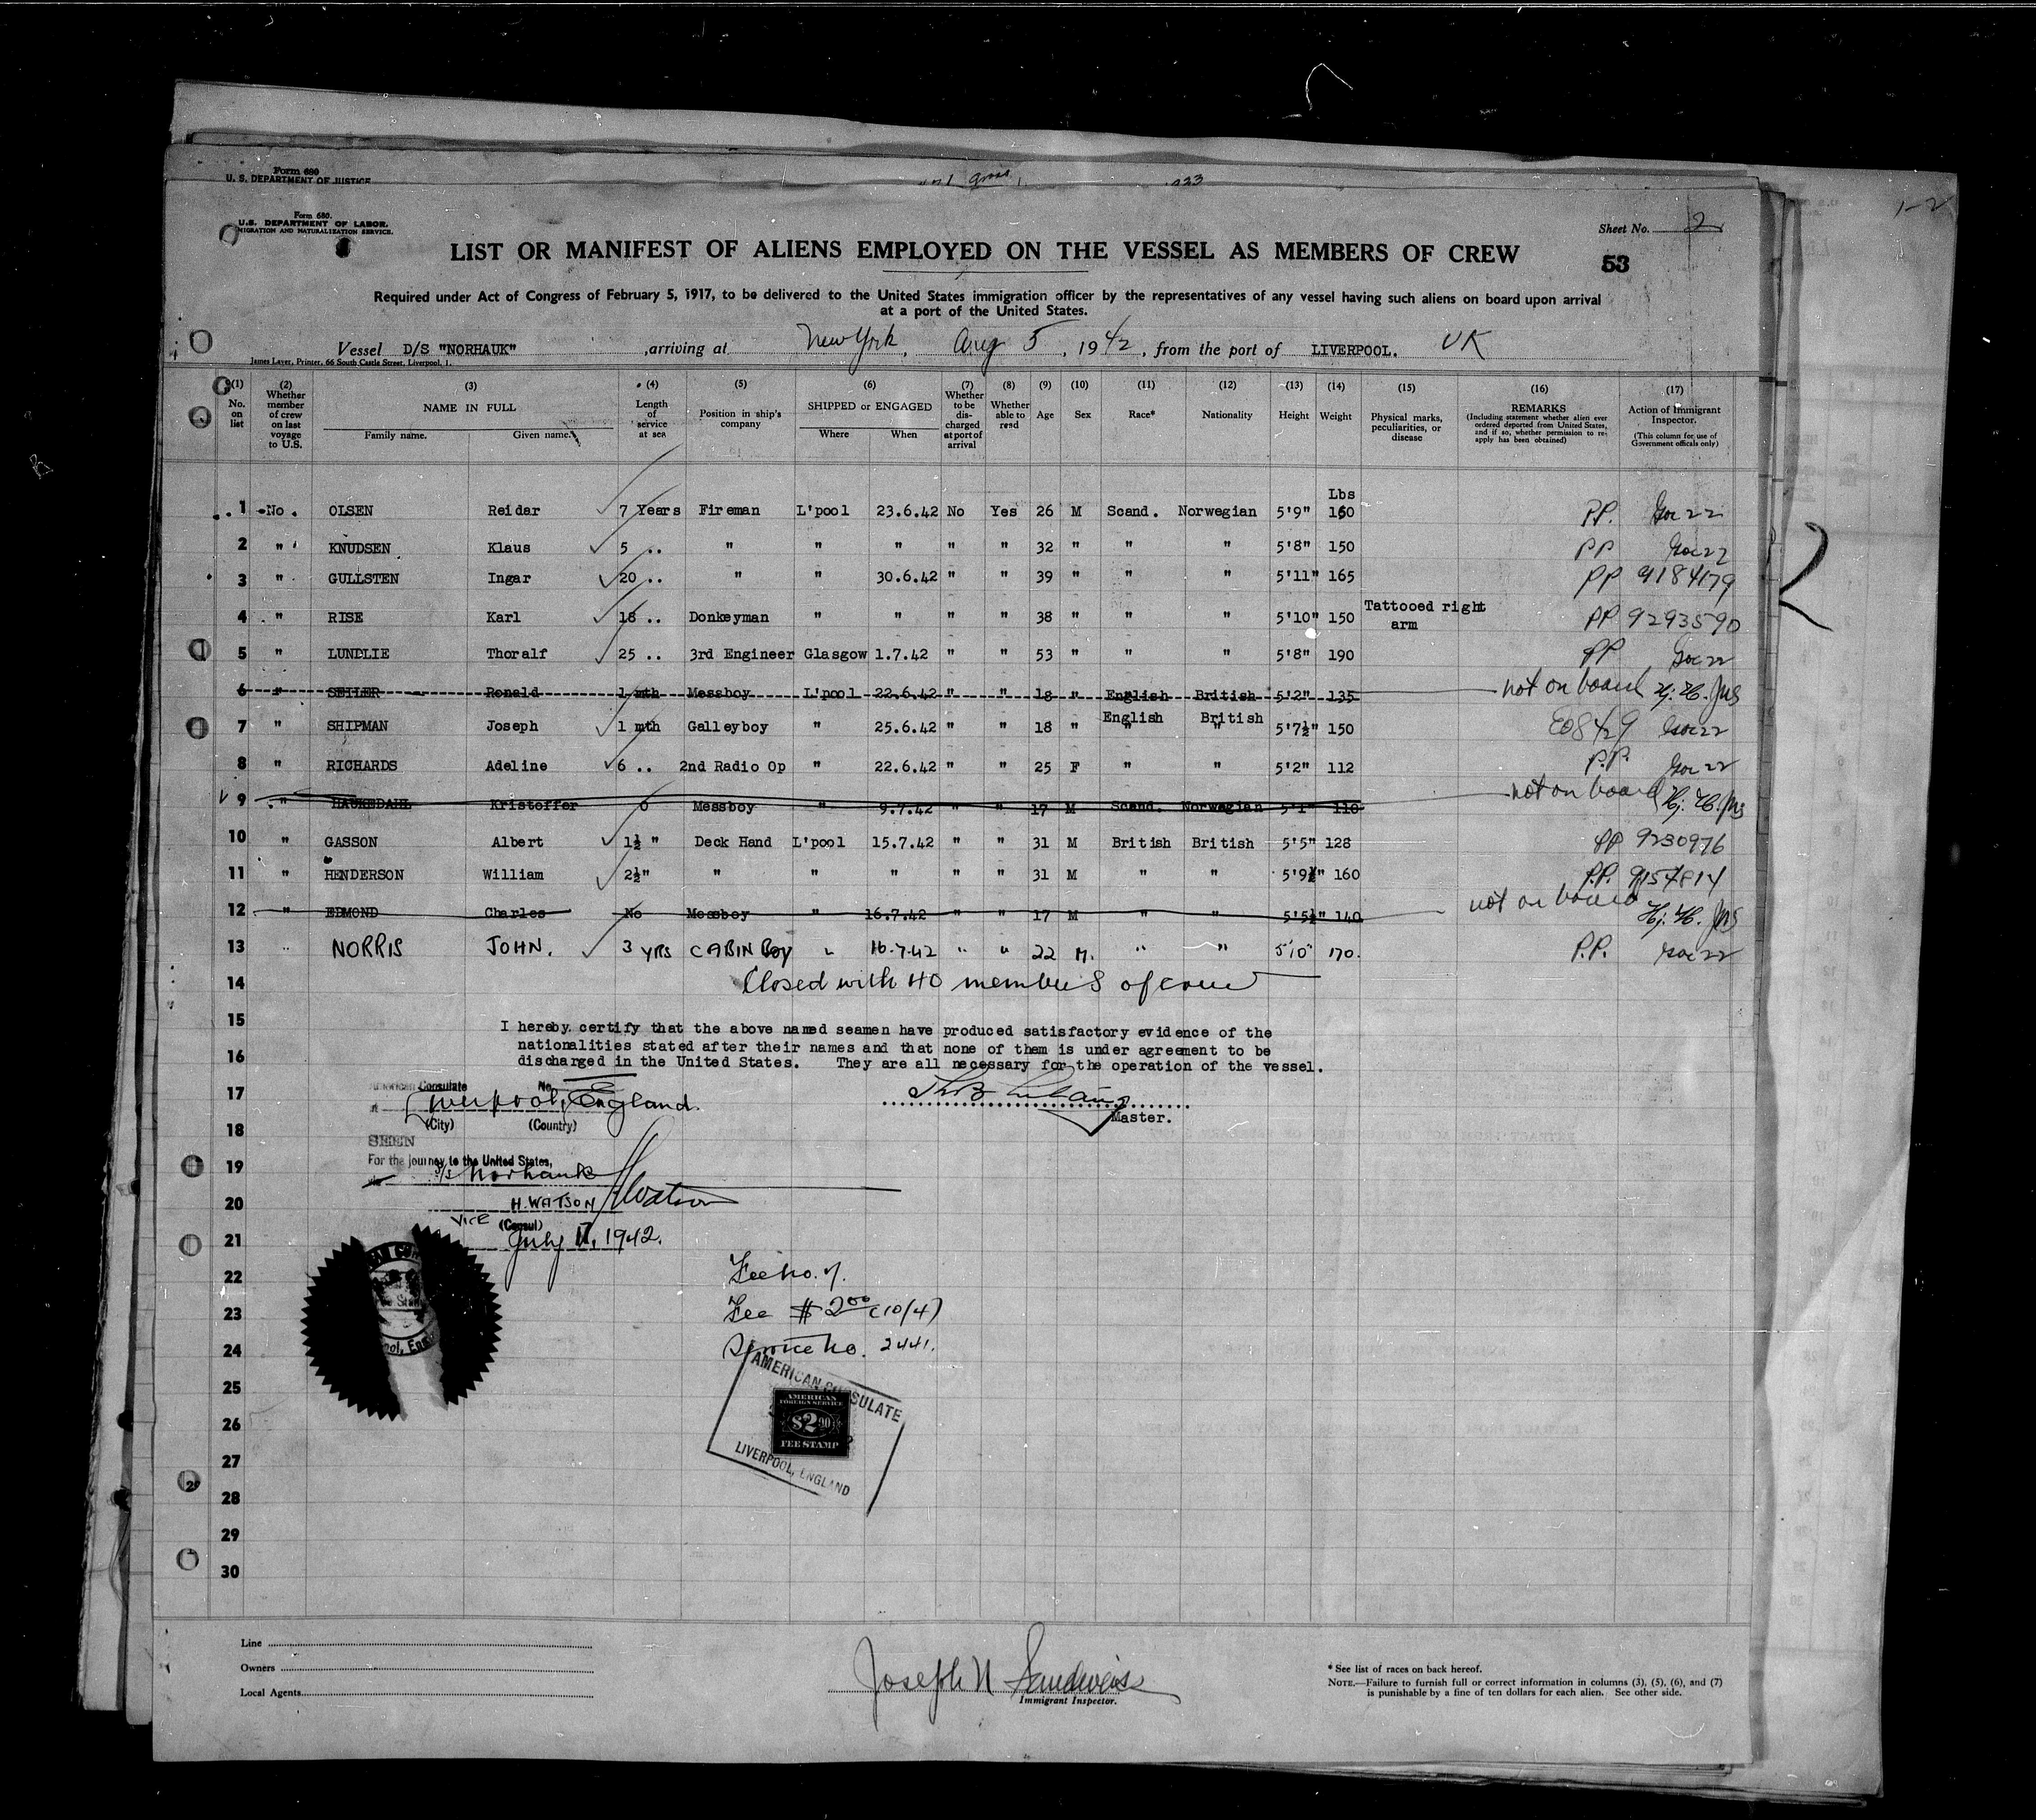 Form 680
U. S. DEPARTMENT OF JUSTICE
1-2
Form 680.
U.S. DEPARTMENT OF LABOR.
IMMIGRATION AND NATURALIZATION SERVICE.
Sheet No. 2
LIST OR MANIFEST OF ALIENS EMPLOYED ON THE VESSEL AS MEMBERS OF CREW
53
Required under Act of Congress of February 5, 1917, to be delivered to the United States immigration officer by the representatives of any vessel having such aliens on board upon arrival
at a port of the United States.
Vessel D/S "NORHAUK" , arriving at New York, Aug 5, 1942, from the port of LIVERPOOL. UK
James Laver, Printer, 66 South Castle Street, Liverpool, 1.
(1) No. on list
(2) Whether member of crew on last voyage to U.S.
(3) NAME IN FULL Family name. Given name.
(4) Length of service at sea
(5) Position in ship's company
(6) SHIPPED or ENGAGED Where When
(7) Whether to be discharged at port of arrival
(8) Whether able to read
(9) Age
(10) Sex
(11) Race*
(12) Nationality
(13) Height
(14) Weight
(15) Physical marks, peculiarities, or disease
(16) REMARKS (Including statement whether alien ever ordered deported from United States, and if so, whether permission to re-apply has been obtained)
(17) Action of Immigrant Inspector. (This column for use of Government officials only)
Lbs
1 No. OLSEN Reidar 7 Years Fireman L'pool 23.6.42 No Yes 26 M Scand. Norwegian 5'9" 160 PP.
2 " KNUDSEN Klaus 5 .. " " " " " 32 " " " 5'8" 150 PP
3 " GULLSTEN Ingar 20 .. " " 30.6.42 " " 39 " " " 5'11" 165 PP 9184179
4 " RISE Karl 18 .. Donkeyman " " " " 38 " " " 5'10" 150 Tattooed right arm PP 9293590
5 " LUNDLIE Thoralf 25 .. 3rd Engineer Glasgow 1.7.42 " " 53 " " " 5'8" 190 PP
6 " SEILER Ronald 1 mth Messboy L'pool 22.6.42 " " 18 " English British 5'2" 135 not on board
7 " SHIPMAN Joseph 1 mth Galleyboy " 25.6.42 " " 18 " English British 5'7½" 150
8 " RICHARDS Adeline 6 .. 2nd Radio Op " 22.6.42 " " 25 F " " 5'2" 112 P.P.
9 " HAUKEDAHL Kristoffer 0 Messboy " 9.7.42 " " 17 M Scand. Norwegian 5'1" 110 not on board
10 " GASSON Albert 1½ " Deck Hand L'pool 15.7.42 " " 31 M British British 5'5" 128 PP 9230976
11 " HENDERSON William 2½" " " " " " 31 M " " 5'9½" 160 P.P. 9157814
12 " EDMOND Charles No Messboy " 16.7.42 " " 17 M " " 5'5½" 140 not on board
13 " NORRIS JOHN. 3 YRS CABIN Boy " 16.7.42 " " 22 M. " " 5'10" 170. P.P.
14 Closed with 40 members of crew
15 I hereby certify that the above named seamen have produced satisfactory evidence of the
nationalities stated after their names and that none of them is under agreement to be
16 discharged in the United States. They are all necessary for the operation of the vessel.
American Consulate No.
17 at Liverpool, England.
(City) (Country)
Master.
18
SEEN
19 For the journey to the United States,
via S/s Norhauk
20 H. WATSON HWatson
VICE (Consul)
21 July 17, 1942.
22 Fee No. 7.
23 Fee $ 2.00 (10/4)
24 Service No. 2441.
25 AMERICAN CONSULATE
AMERICAN
FOREIGN SERVICE
26 $2.00
FEE STAMP
27 LIVERPOOL, ENGLAND
28
29
30
Line
Owners
Local Agents
Joseph N Sandweiss
Immigrant Inspector.
* See list of races on back hereof.
NOTE.—Failure to furnish full or correct information in columns (3), (5), (6), and (7)
is punishable by a fine of ten dollars for each alien. See other side.
2